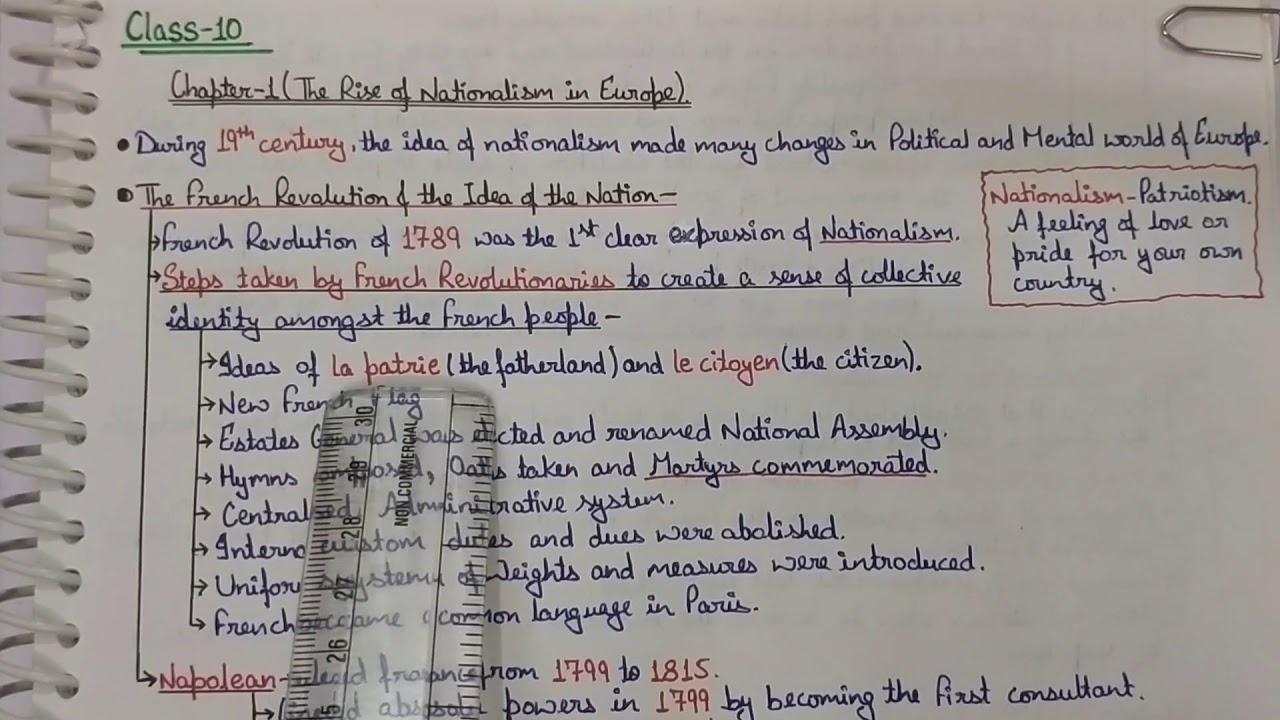 Class-10
Chapter-1 (The Rise of Nationalism in Europe).
• During 19th century, the idea of nationalism made many changes in Political and Mental world of Europe.
• The French Revolution & the Idea of the Nation-
French Revolution of 1789 was the 1st clear expression of Nationalism.
Steps taken by French Revolutionaries to create a sense of collective
identity amongst the french people-
Ideas of la patrie (the fatherland) and le citoyen (the citizen).
New french flag
Estates General was elected and renamed National Assembly.
Hymns composed, Oaths taken and Martyrs commemorated.
Centralised Administrative system.
Internal custom duties and dues were abolished.
Uniform system of Weights and measures were introduced.
French became common language in Paris.
Napolean- france from 1799 to 1815.
powers in 1799 by becoming the first consultant.
Nationalism-Patriotism.
A feeling of love or
pride for your own
country.
30
29
28
27
26
NON COMMERCIAL